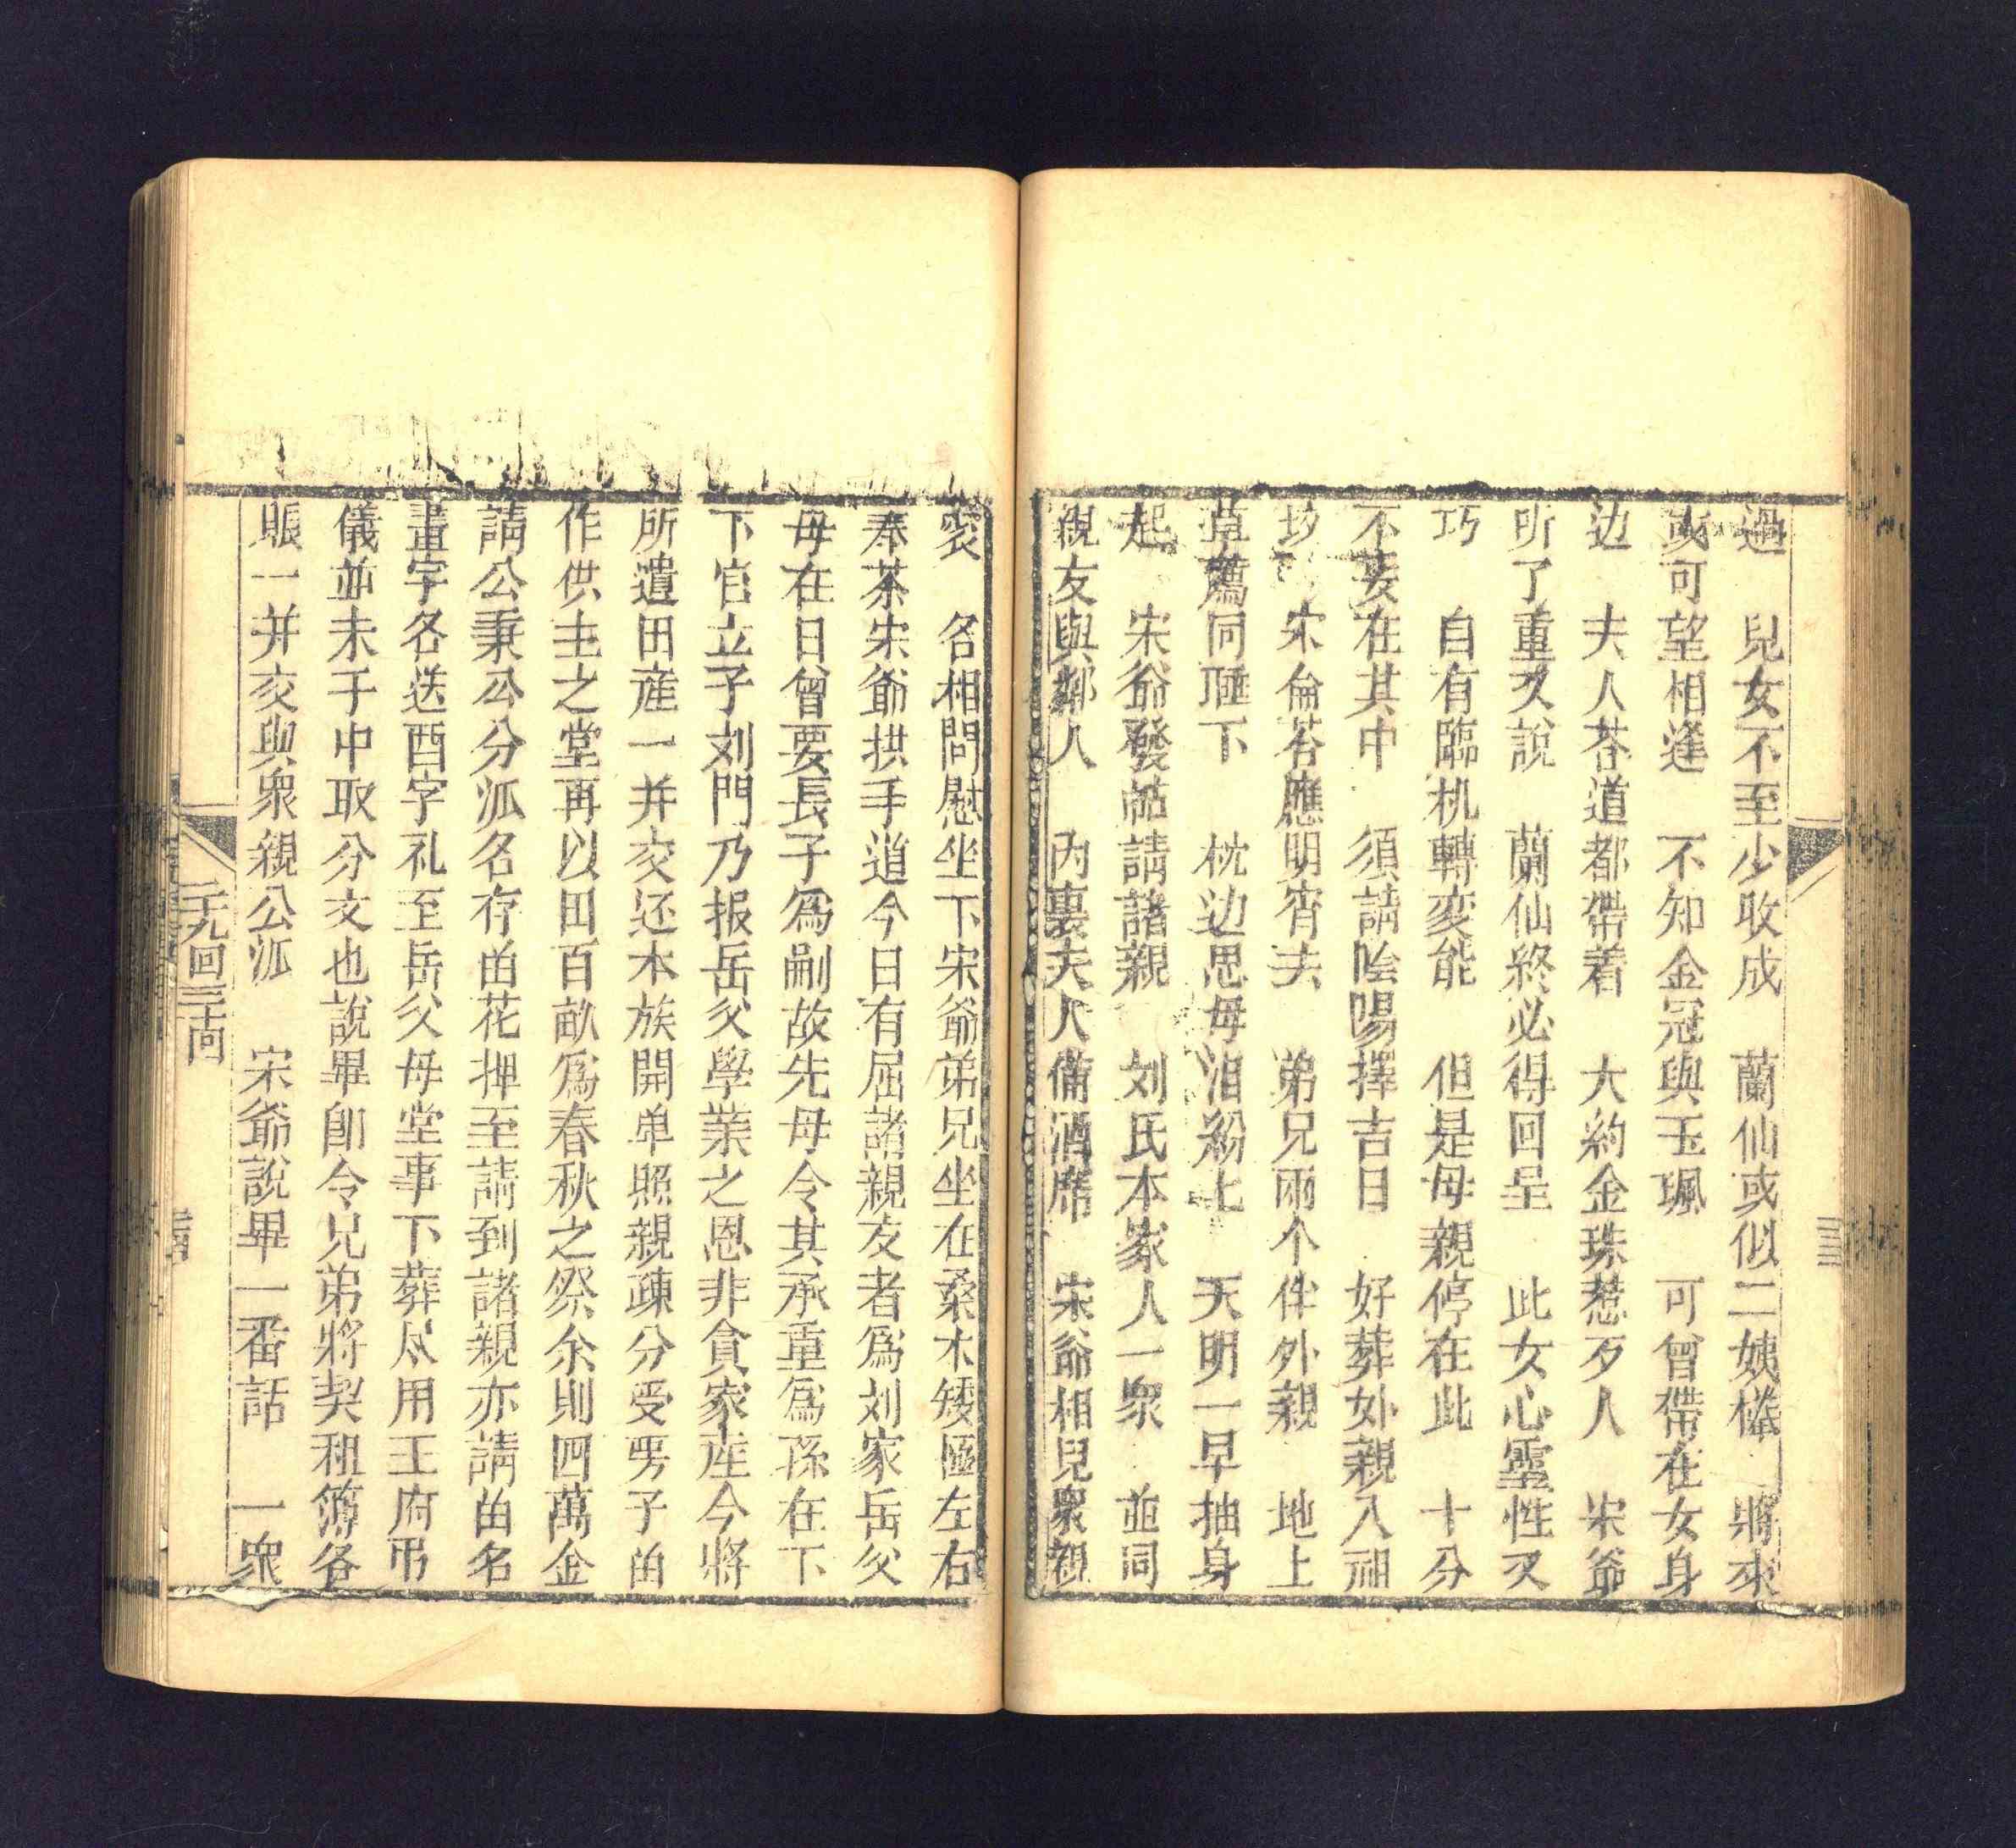 過 兒女不至少收成 蘭仙或似二姨樣 將來
或可望相逢 不知金冠與玉珮 可曾帶在女身
边 夫人荅道都帶着 大約金珠惹歹人 宋爺
听了重又說 蘭仙終必得回呈 此女心靈性又
巧 自有臨机轉变能 但是母親停在此 十分
不妥在其中 須請陰陽擇吉日 好葬妣親入祖
坟 宋倫荅應明宵去 弟兄兩个伴外親 地上
草薦同睡下 枕边思母泪紛七 天明一早抽身
起 宋爺發帖請諸親 刘氏本家人一衆 並同
親友與鄰人 內裏夫人備酒席 宋爺相見衆親
 名相問慰坐下宋爺弟兄坐在桑木矮櫈左右
奉茶宋爺拱手道今日有屈諸親友者爲刘家岳父
母在日曾要長子爲嗣故先母令其承重爲孫在下
下官立子刘門乃报岳父學業之恩非貪家產今將
所遺田產一并交还本族開单照親疎分受另子由
作供主之堂再以田百畝爲春秋之祭余則四萬金
請公秉公分派名存由花押至請到諸親亦請由名
畫字各送酉字礼至岳父母堂事下葬尽用王府弔
儀並未于中取分文也說畢卽令兄弟將契租簿各
賬一并交與衆親公派 宋爺說畢一番話 一衆
二九回